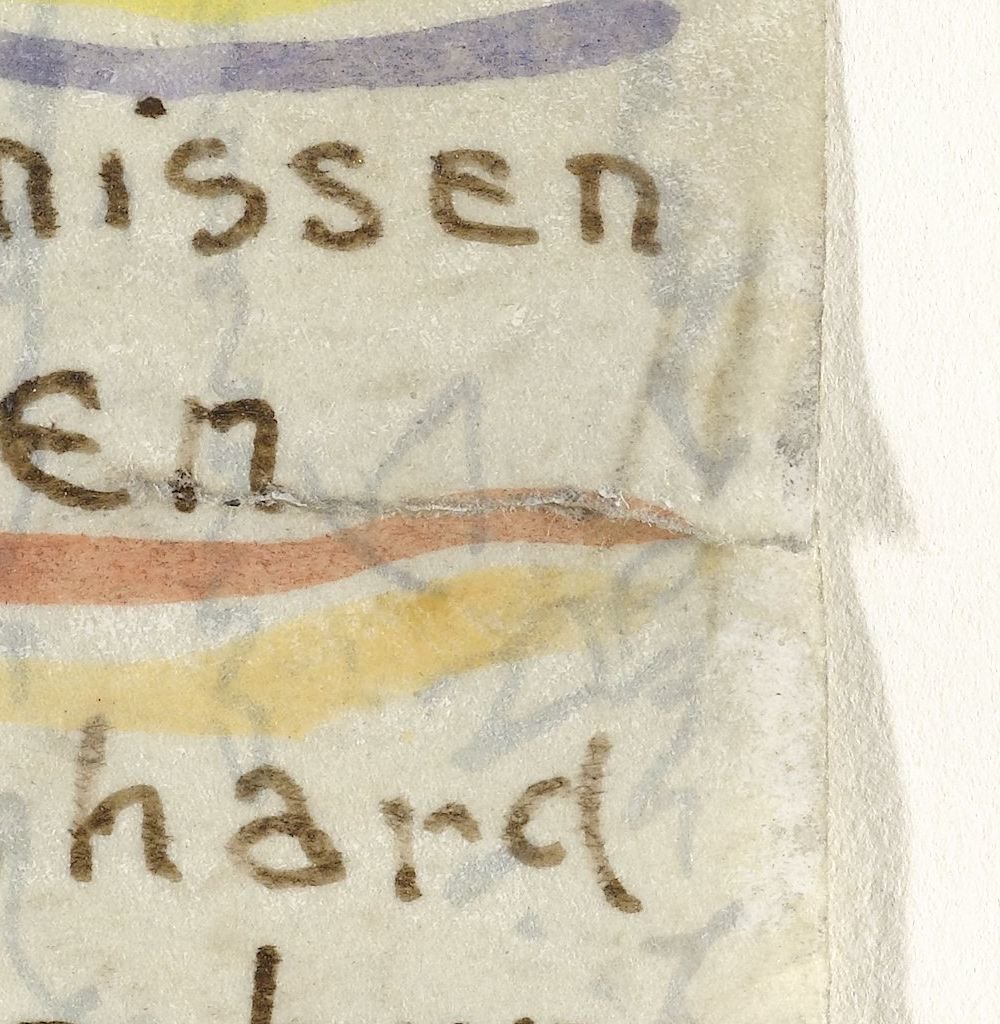 nissen
en
hard